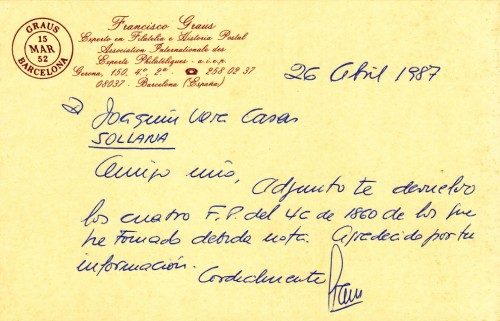 GRAUS
15
MAR
52
BARCELONA
Francisco Graus
Experto en Filatelia e Historia Postal
Association Internationale des
Experts Philatéliques - a.i.e.p.
Gerona, 150, 4.º, 2.ª - ☎ 258 02 37
08037 - Barcelona (España)
26 Abril 1987
D Joaquín Vera Casas
SOLLANA
Amigo mío, Adjunto te devuelvo
los cuatro F.P. del 4c de 1860 de los que
he tomado debida nota. Agradecido por tu
información. Cordialmente
Graus